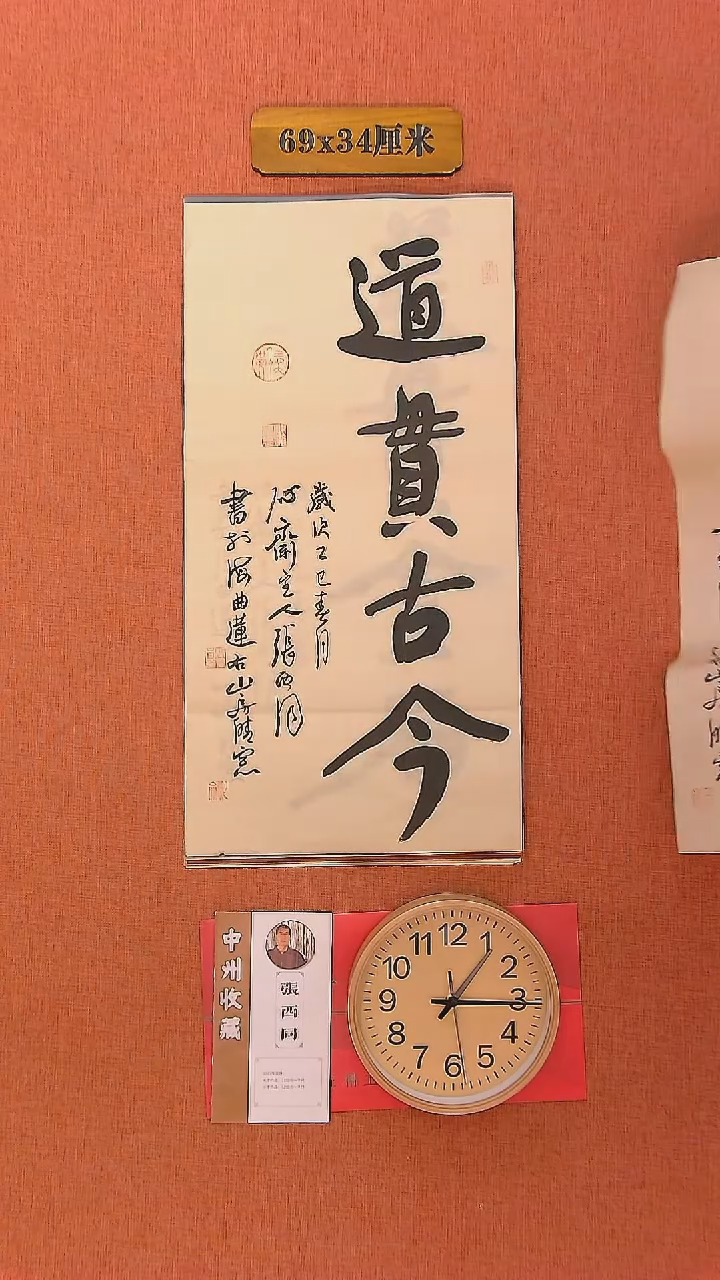 69x34厘米
道貫古今
歲次乙巳春月
齋主人張西同
書於濁曲蓮右山房晴窓
中州收藏
張西同
12
1
2
3
4
5
6
7
8
9
10
11